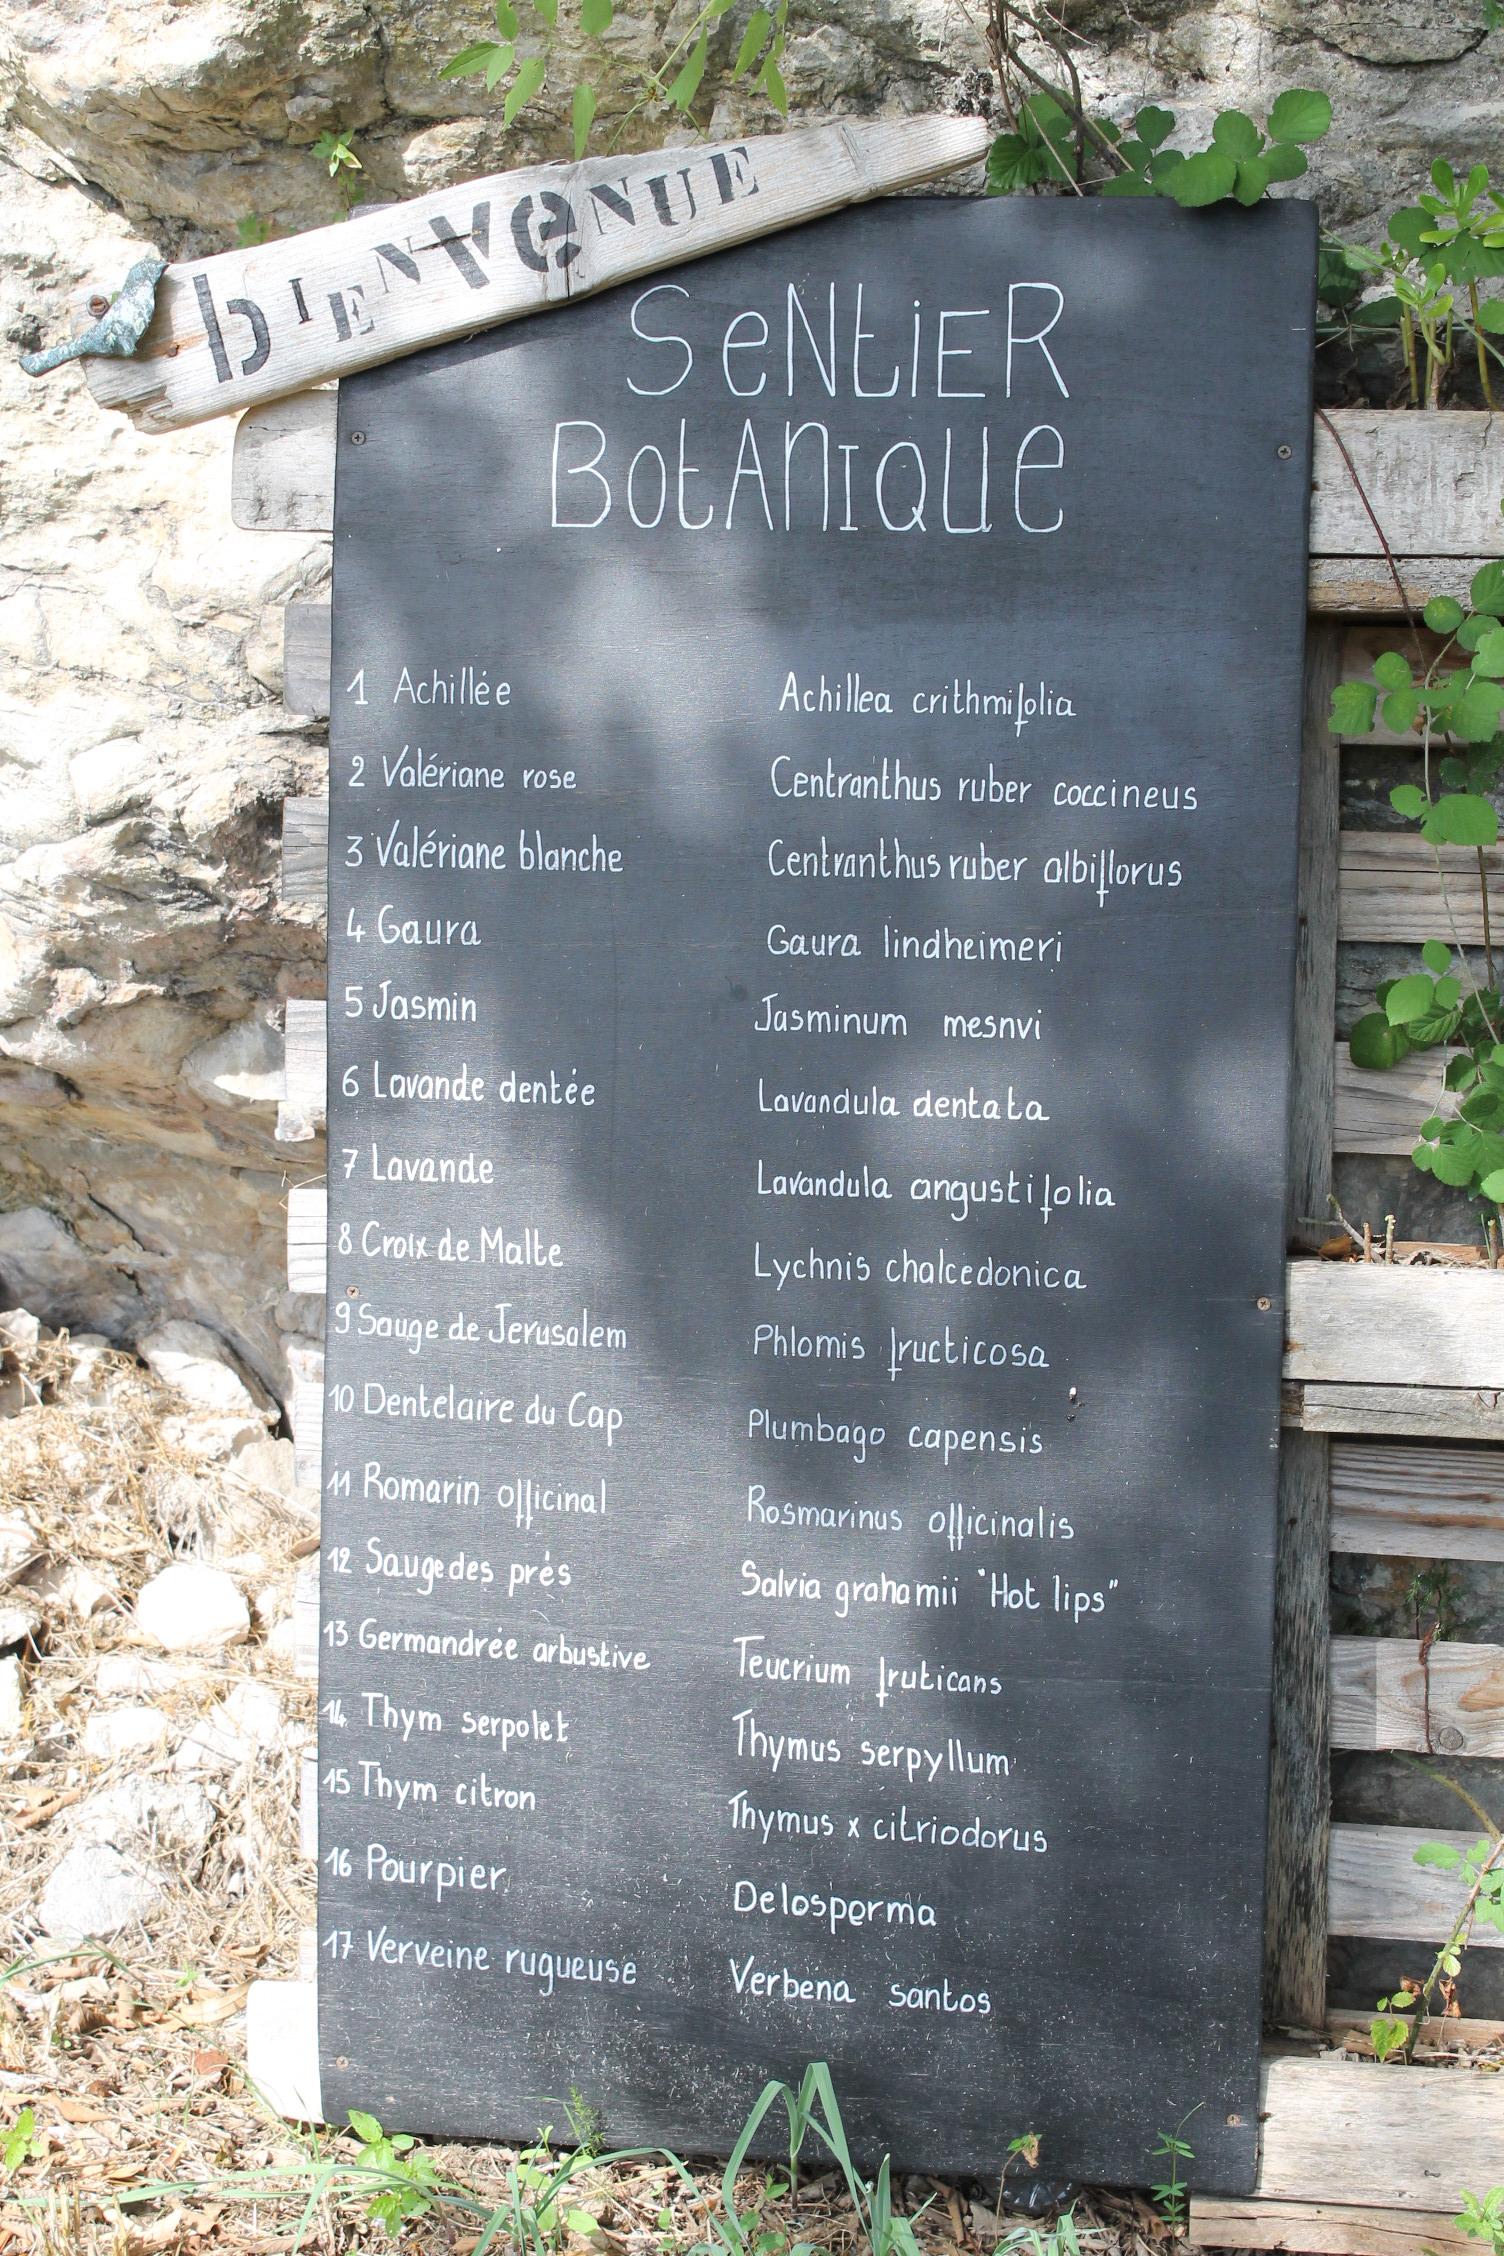 bIENVeNUE
SeNtiER
BotANIQUe
1 Achillée Achillea crithmifolia
2 Valériane rose Centranthus ruber coccineus
3 Valériane blanche Centranthus ruber albiflorus
4 Gaura Gaura lindheimeri
5 Jasmin Jasminum mesnyi
6 Lavande dentée Lavandula dentata
7 Lavande Lavandula angustifolia
8 Croix de Malte Lychnis chalcedonica
9 Sauge de Jerusalem Phlomis fructicosa
10 Dentelaire du Cap Plumbago capensis
11 Romarin officinal Rosmarinus officinalis
12 Sauge des prés Salvia grahamii "Hot lips"
13 Germandrée arbustive Teucrium fruticans
14 Thym serpolet Thymus serpyllum
15 Thym citron Thymus x citriodorus
16 Pourpier Delosperma
17 Verveine rugueuse Verbena santos